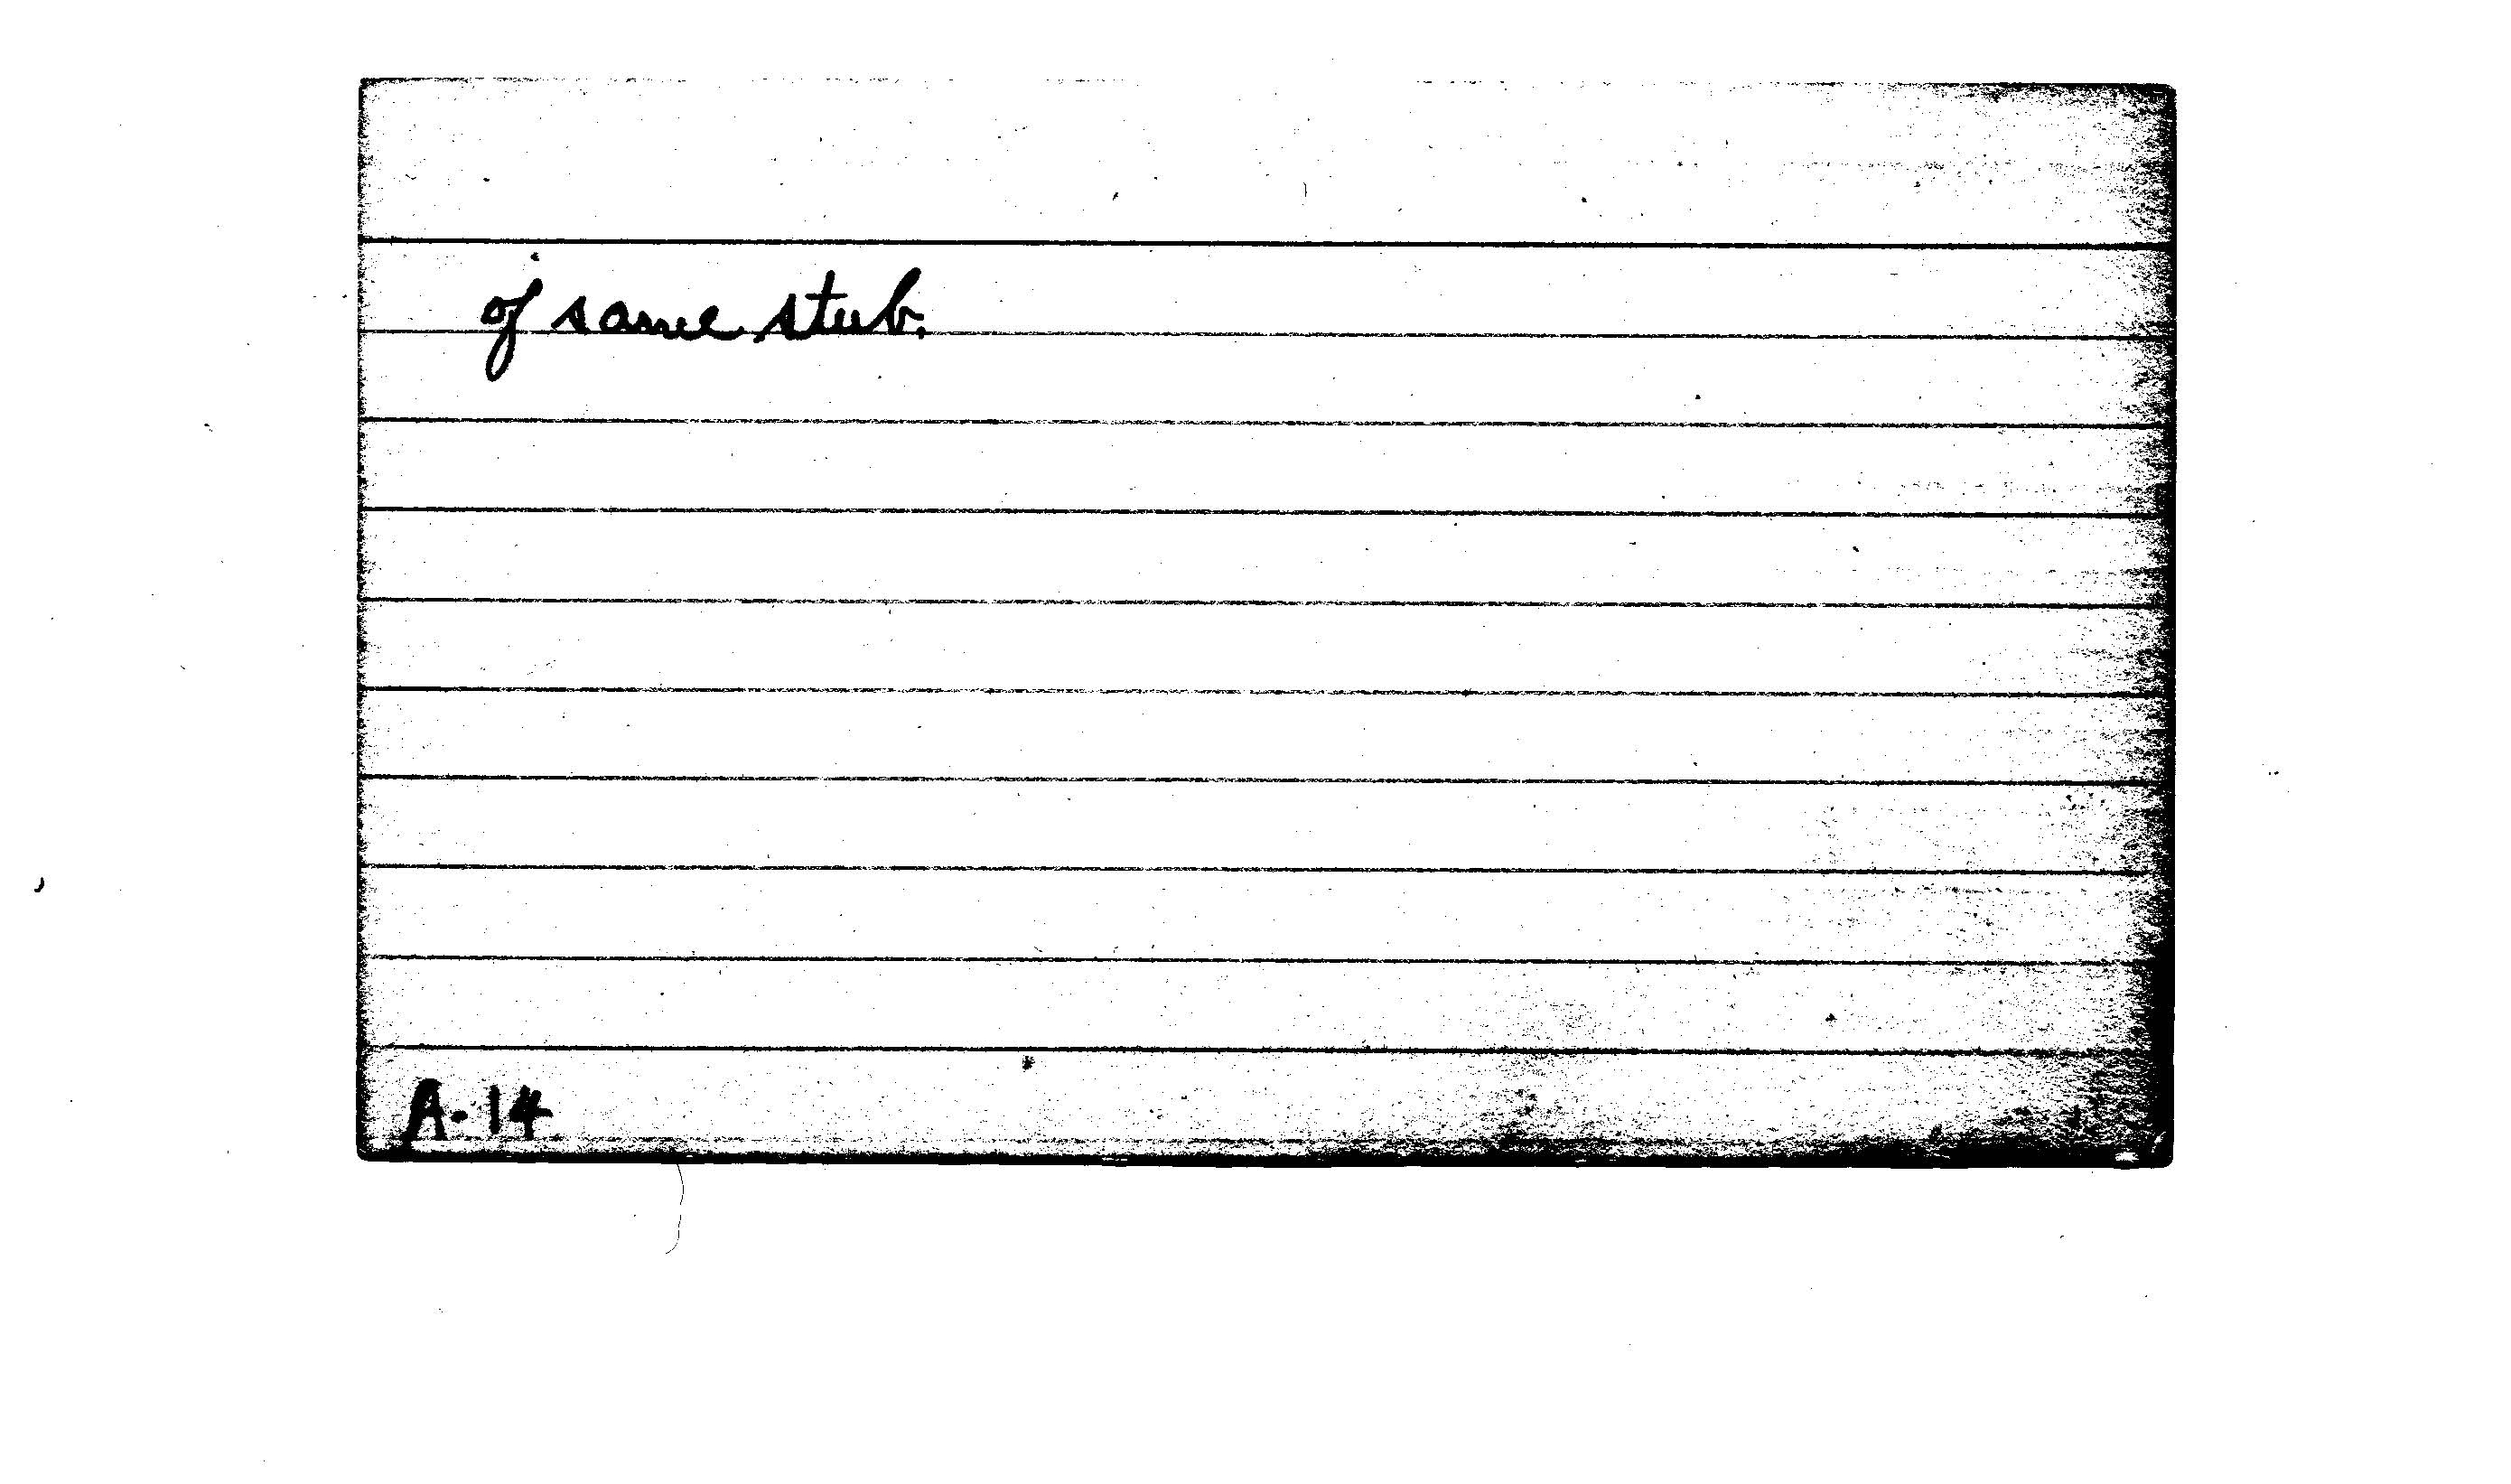 of same stub.
A-14